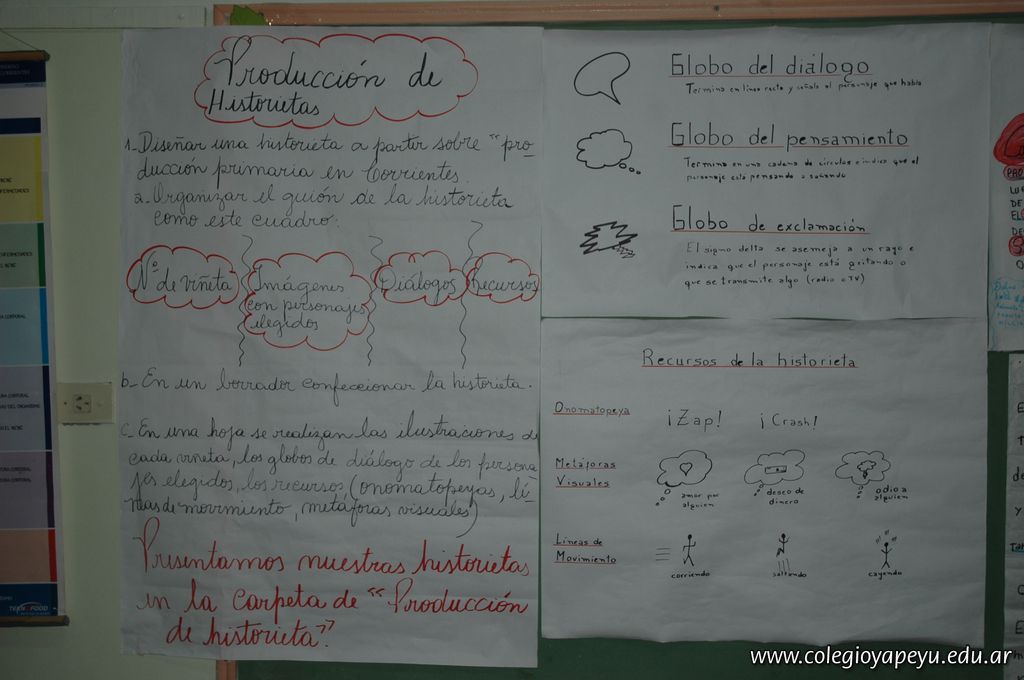 Producción de
Historietas
1- Diseñar una historieta a partir sobre "pro-
ducción primaria en Corrientes.
a- Organizar el guión de la historieta
como este cuadro:
Nº de viñeta
Imágenes
con personajes
elegidos
Diálogos
Recursos
b- En un borrador confeccionar la historieta.
c- En una hoja se realizan las ilustraciones de
cada viñeta, los globos de diálogo de los persona
jes elegidos, los recursos (onomatopeyas, lí-
neas de movimiento, metáforas visuales)
Presentamos nuestras historietas
en la carpeta de "Producción
de historieta".
Globo del diálogo
Termina en línea recta y señala al personaje que habla
Globo del pensamiento
Termina en una cadena de círculos e indica que el
personaje está pensando o soñando
Globo de exclamación
El signo delta se asemeja a un rayo e
indica que el personaje está gritando o
que se transmite algo (radio o TV)
Recursos de la historieta
Onomatopeya
¡Zap! ¡Crash!
Metáforas
Visuales
amor por
alguien
deseo de
dinero
odio a
alguien
Líneas de
Movimiento
corriendo
saltando
cayendo
www.colegioyapeyu.edu.ar